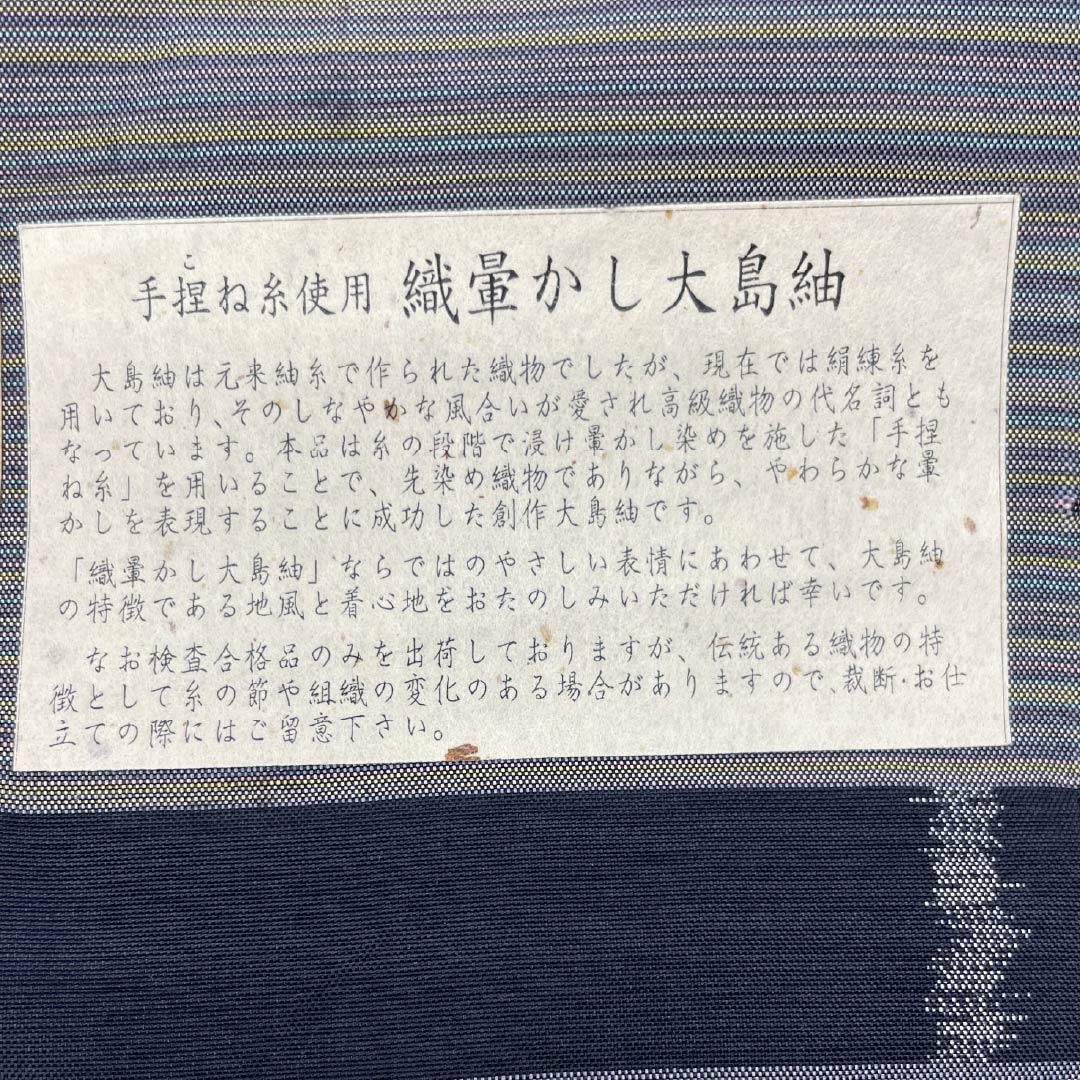 手捏ね糸使用 織暈かし大島紬
こ
大島紬は元来紬糸で作られた織物でしたが、現在では絹練糸を
用いており、そのしなやかな風合いが愛され高級織物の代名詞とも
なっています。本品は糸の段階で浸け暈かし染めを施した「手捏
ね糸」を用いることで、先染め織物でありながら、やわらかな暈
かしを表現することに成功した創作大島紬です。
「織暈かし大島紬」ならではのやさしい表情にあわせて、大島紬
の特徴である地風と着心地をおたのしみいただければ幸いです。
なお検査合格品のみを出荷しておりますが、伝統ある織物の特
徴として糸の節や組織の変化のある場合がありますので、裁断・お仕
立ての際にはご留意下さい。